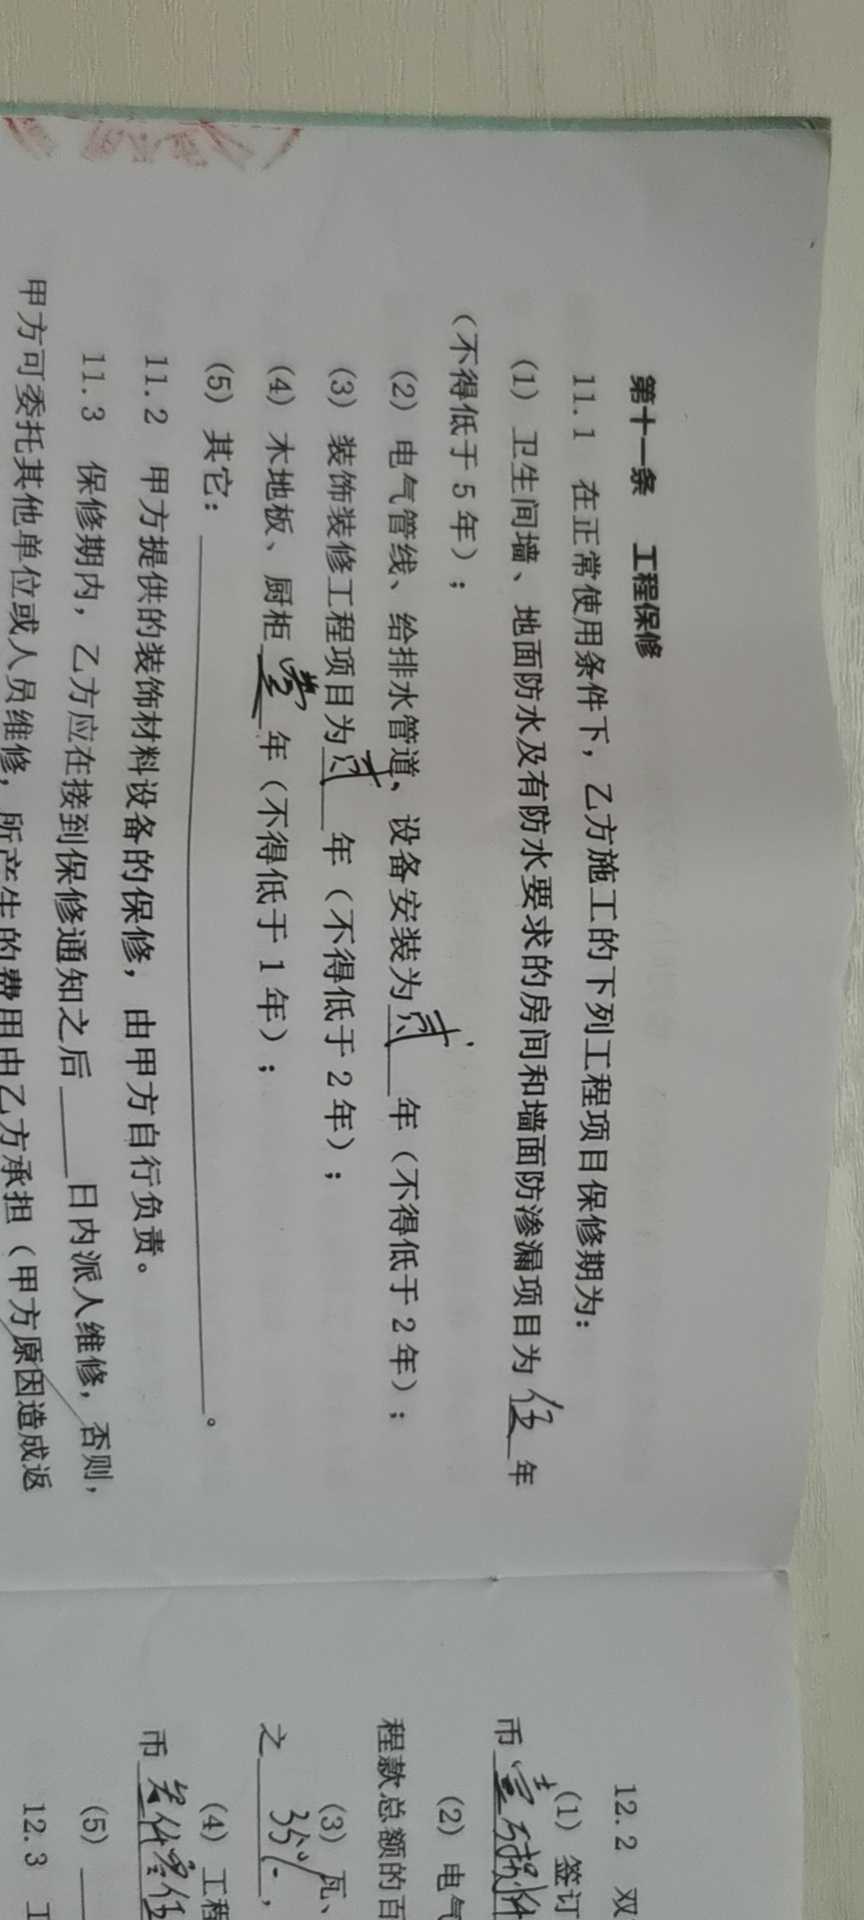 第十一条 工程保修
11.1 在正常使用条件下，乙方施工的下列工程项目保修期为：
(1) 卫生间墙、地面防水及有防水要求的房间和墙面防渗漏项目为 伍 年
（不得低于 5 年）；
(2) 电气管线、给排水管道、设备安装为 贰 年（不得低于 2 年）；
(3) 装饰装修工程项目为 贰 年（不得低于 2 年）；
(4) 木地板、厨柜 壹 年（不得低于 1 年）；
(5) 其它：______。
11.2 甲方提供的装饰材料设备的保修，由甲方自行负责。
11.3 保修期内，乙方应在接到保修通知之后____日内派人维修，否则，
甲方可委托其他单位或人员维修，所产生的费用由乙方承担（甲方原因造成返
12.2 双
(1) 签订
币 壹万
(2) 电气
程款总额的百
(3) 瓦、
之 35%，
(4) 工程
币
(5)
12.3 工